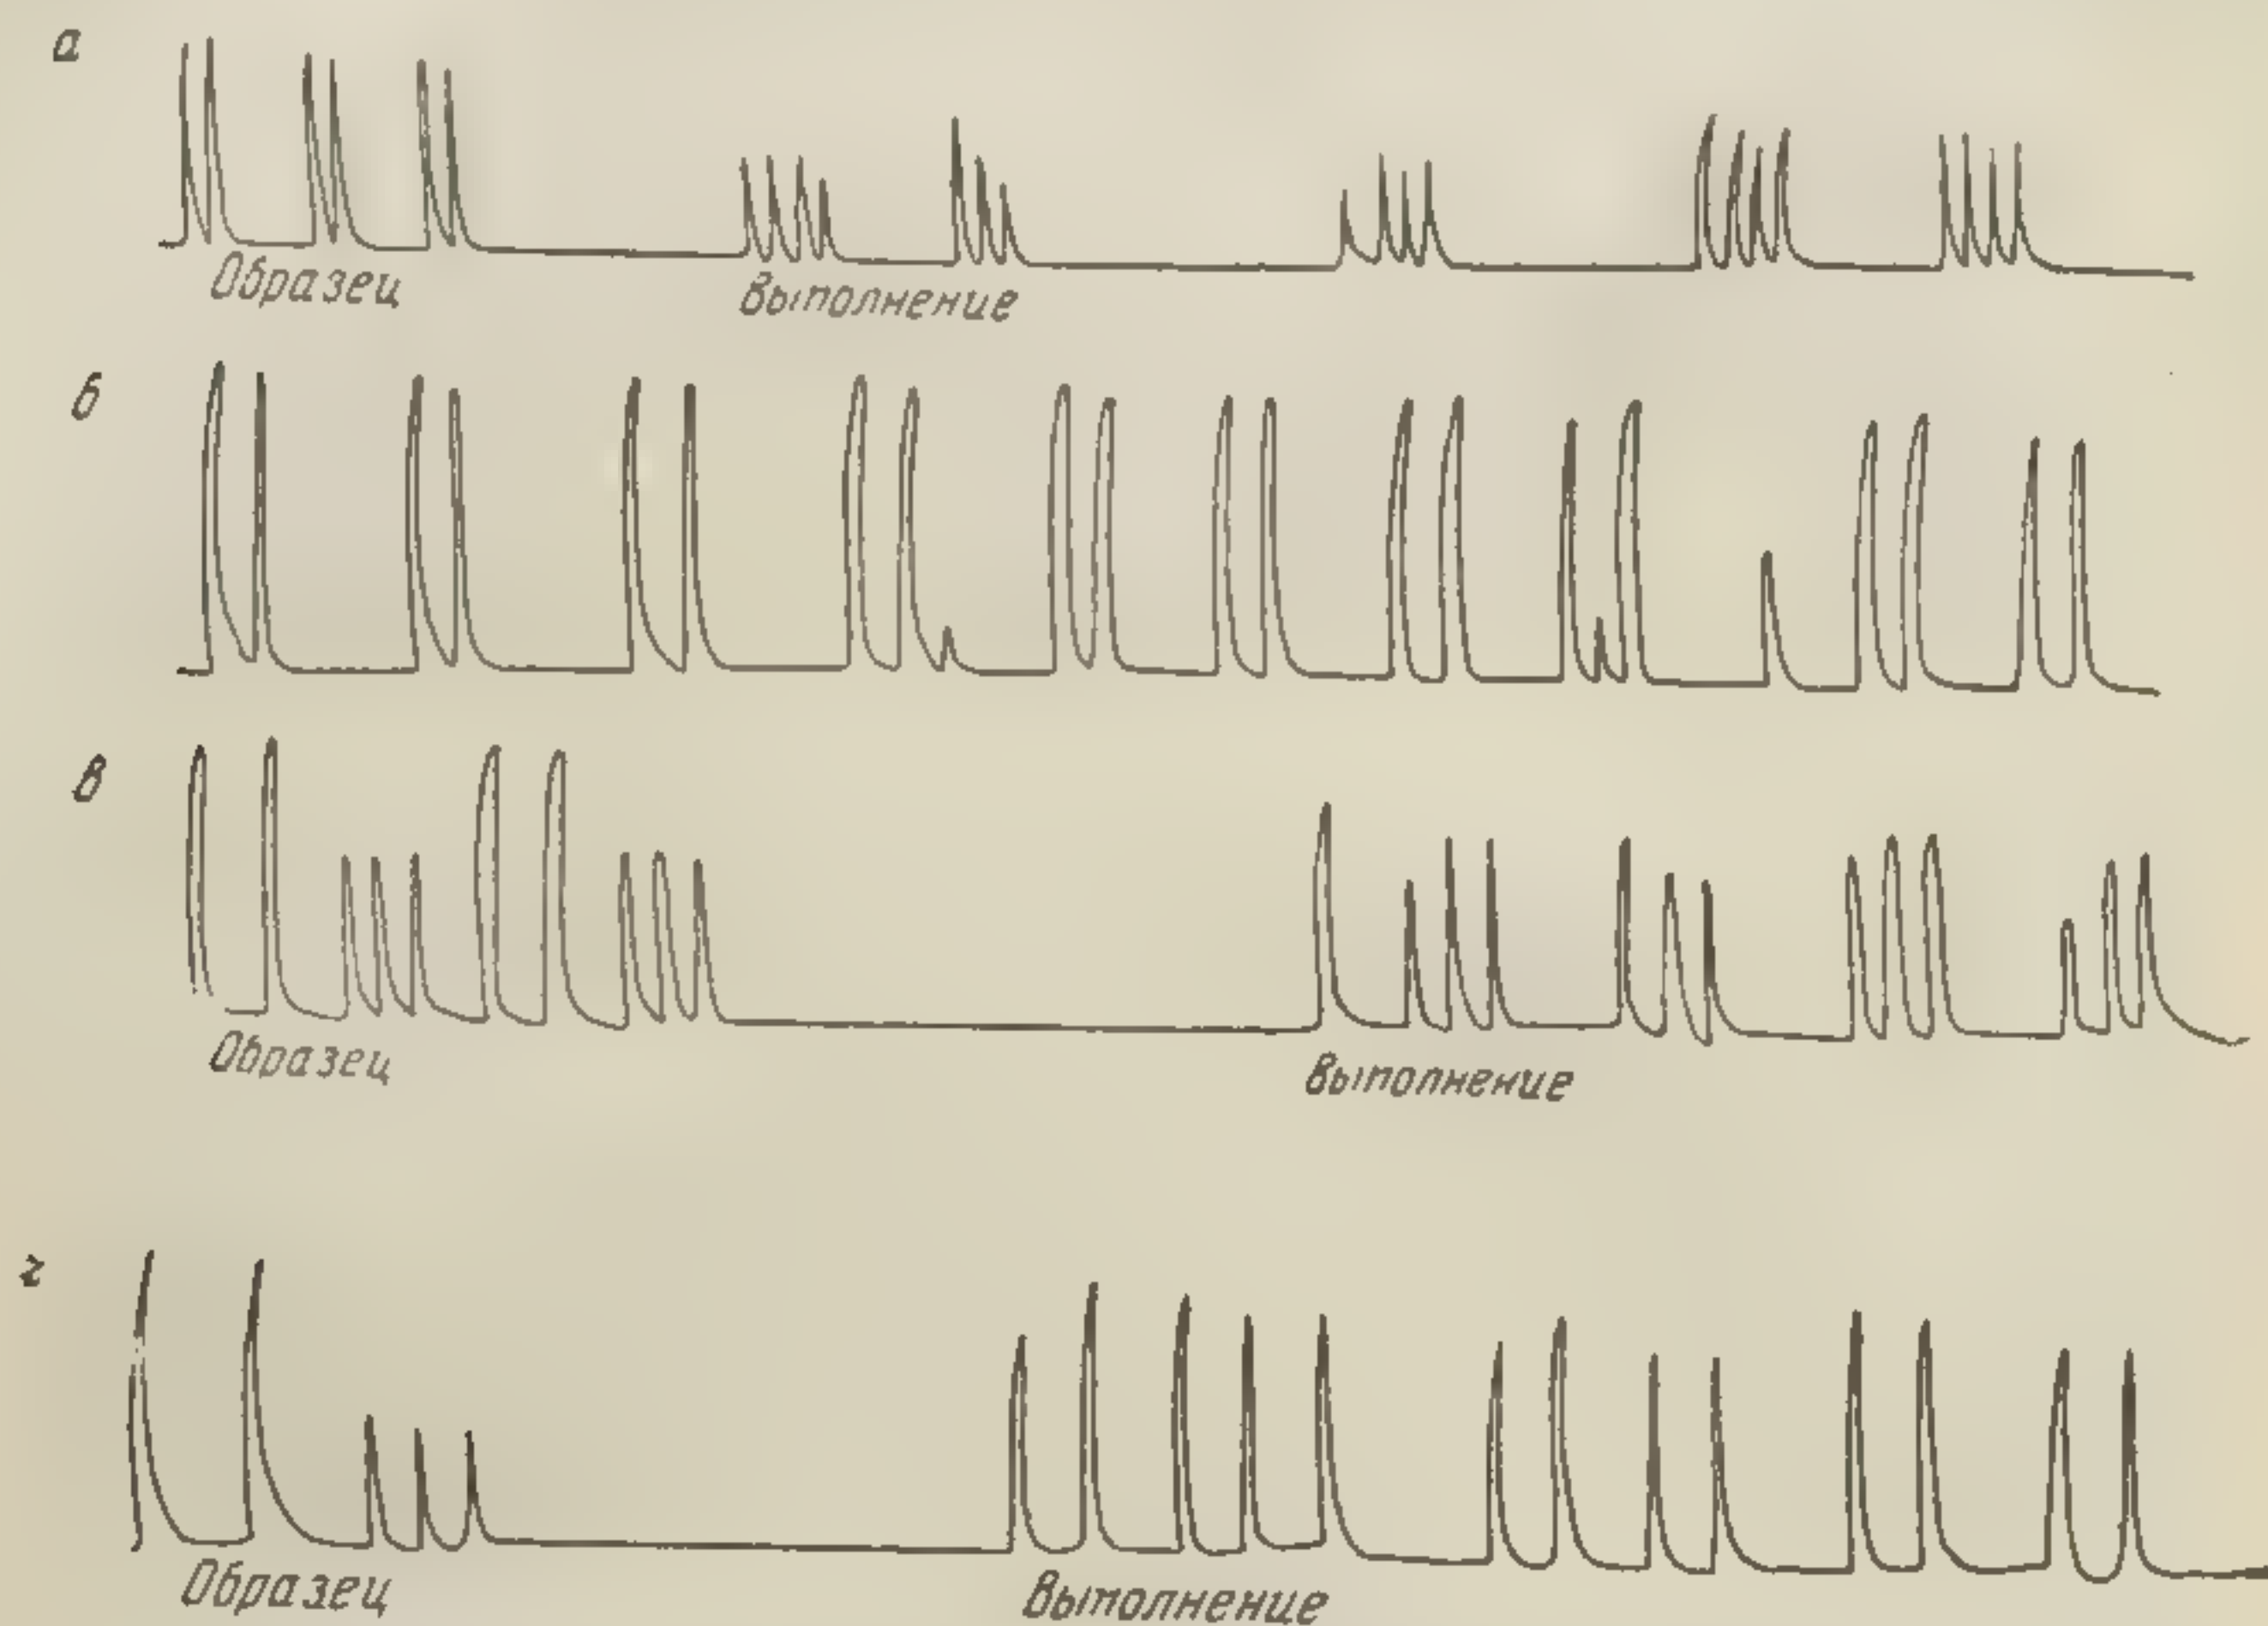 а
Образец
Выполнение
б
в
Образец
Выполнение
г
Образец
Выполнение